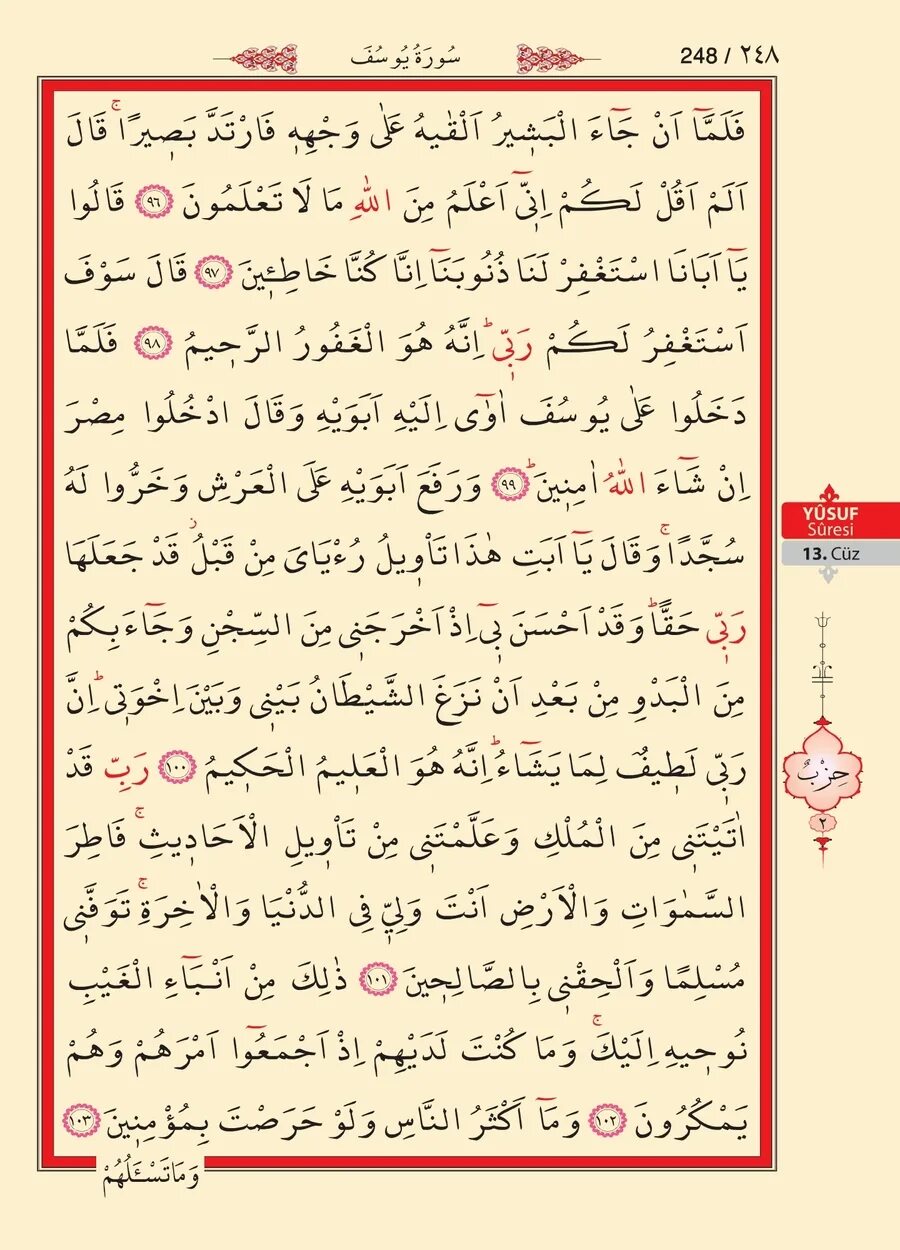 سُورَةُ يُوسُفَ
248 / ٢٤٨
فَلَمَّٓا اَنْ جَٓاءَ الْبَش۪يرُ اَلْقٰيهُ عَلٰى وَجْهِه۪ فَارْتَدَّ بَص۪يرًاۚ قَالَ
اَلَمْ اَقُلْ لَكُمْ اِنّ۪ٓي اَعْلَمُ مِنَ اللّٰهِ مَا لَا تَعْلَمُونَ ﴿٩٦﴾ قَالُوا
يَٓا اَبَانَا اسْتَغْفِرْ لَنَا ذُنُوبَنَٓا اِنَّا كُنَّا خَاطِـ۪ٔينَ ﴿٩٧﴾ قَالَ سَوْفَ
اَسْتَغْفِرُ لَكُمْ رَبّ۪يۜ اِنَّهُ هُوَ الْغَفُورُ الرَّح۪يمُ ﴿٩٨﴾ فَلَمَّا
دَخَلُوا عَلٰى يُوسُفَ اٰوٰٓى اِلَيْهِ اَبَوَيْهِ وَقَالَ ادْخُلُوا مِصْرَ
اِنْ شَٓاءَ اللّٰهُ اٰمِن۪ينَۜ ﴿٩٩﴾ وَرَفَعَ اَبَوَيْهِ عَلَى الْعَرْشِ وَخَرُّوا لَهُ
سُجَّدًاۚ وَقَالَ يَٓا اَبَتِ هٰذَا تَأْو۪يلُ رُءْيَايَ مِنْ قَبْلُۘ قَدْ جَعَلَهَا
رَبّ۪ي حَقًّاۜ وَقَدْ اَحْسَنَ ب۪ٓي اِذْ اَخْرَجَن۪ي مِنَ السِّجْنِ وَجَٓاءَ بِكُمْ
مِنَ الْبَدْوِ مِنْ بَعْدِ اَنْ نَزَغَ الشَّيْطَانُ بَيْن۪ي وَبَيْنَ اِخْوَت۪يۜ اِنَّ
رَبّ۪ي لَط۪يفٌ لِمَا يَشَٓاءُۜ اِنَّهُ هُوَ الْعَل۪يمُ الْحَك۪يمُ ﴿١٠٠﴾ رَبِّ قَدْ
اٰتَيْتَن۪ي مِنَ الْمُلْكِ وَعَلَّمْتَن۪ي مِنْ تَأْو۪يلِ الْاَحَاد۪يثِۚ فَاطِرَ
السَّمٰوَاتِ وَالْاَرْضِ اَنْتَ وَلِيّ۪ فِي الدُّنْيَا وَالْاٰخِرَةِۚ تَوَفَّن۪ي
مُسْلِمًا وَاَلْحِقْن۪ي بِالصَّالِح۪ينَ ﴿١٠١﴾ ذٰلِكَ مِنْ اَنْبَٓاءِ الْغَيْبِ
نُوح۪يهِ اِلَيْكَۚ وَمَا كُنْتَ لَدَيْهِمْ اِذْ اَجْمَعُٓوا اَمْرَهُمْ وَهُمْ
يَمْكُرُونَ ﴿١٠٢﴾ وَمَٓا اَكْثَرُ النَّاسِ وَلَوْ حَرَصْتَ بِمُؤْمِن۪ينَ ﴿١٠٣﴾
وَمَا تَسْـَٔلُهُمْ
YÛSUF
Sûresi
13. Cüz
حِزْبٌ
٢